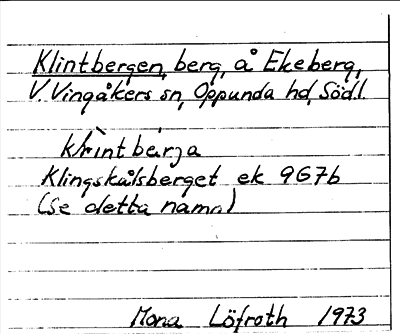 Klintbergen, berg, å Ekeberg,
V. Vingåkers sn, Oppunda hd, Södl.
klìntbérja
Klingskålsberget ek 9G7b
(se detta namn)
Mona Löfroth 1973